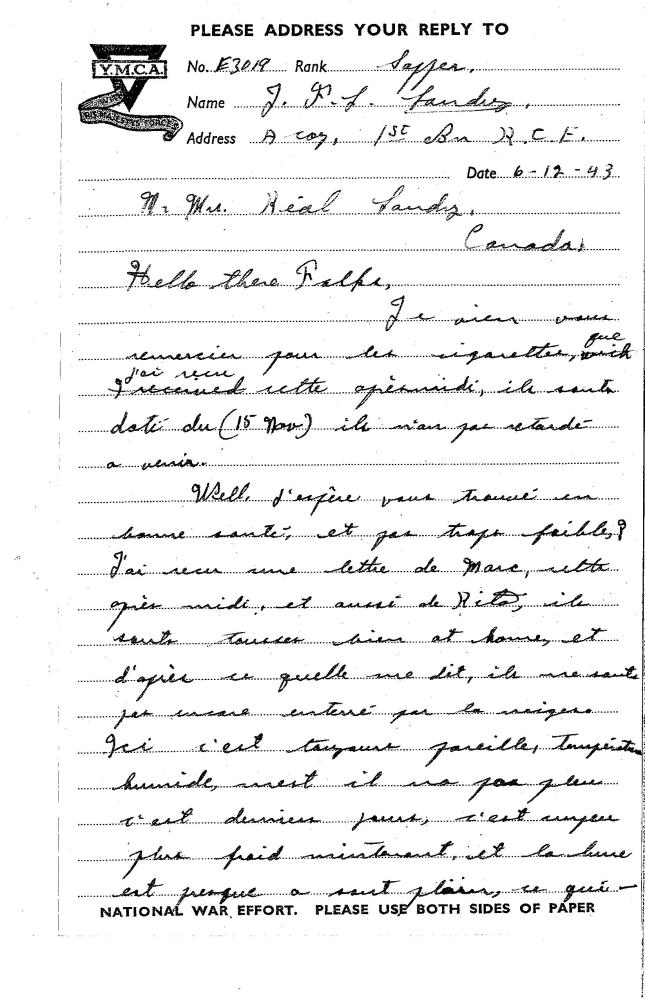 PLEASE ADDRESS YOUR REPLY TO
Y.M.C.A.
HIS MAJESTY'S FORCES
No. E3019 Rank Sapper.
Name J. F. L. Landry.
Address A coy, 1st Bn R.C.E.
Date 6-12-43
M. Mrs. Réal Landry.
Canada.
Hello there Folks,
Je vien vous
remercier pour les cigarettes, wich que
I received j'ai recu cette après midi, ils sonts
daté du (15 Nov) ils n'on pas retardé
a venir.
Well, j'espère vous trouvé en
bonne santé, et pas trops faibles?
J'ai recu une lettre de Marc, cette
après midi, et aussi de Rita, ils
sonts tousses bien at home, et
d'après ce quelle me dit, ils ne sonts
pas encore enterré par la neiges
Ici c'est toujours pareille, température
humide, mest il na pas pleu
c'est derniers jours, c'est unpeu
plus froid maintenant, et la lune
est presque a sont plain, ce qui -
NATIONAL WAR EFFORT. PLEASE USE BOTH SIDES OF PAPER